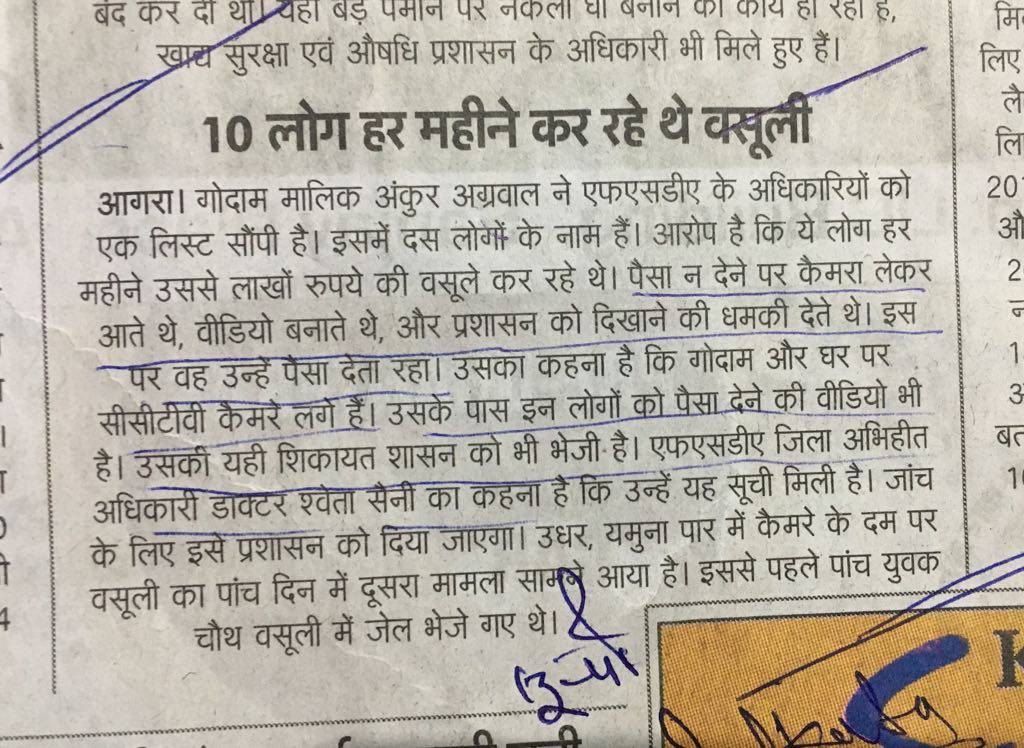 बंद कर दी थी। यहां बड़े पैमाने पर नकली घी बनाने का कार्य हो रहा है,
खाद्य सुरक्षा एवं औषधि प्रशासन के अधिकारी भी मिले हुए हैं।
10 लोग हर महीने कर रहे थे वसूली
आगरा। गोदाम मालिक अंकुर अग्रवाल ने एफएसडीए के अधिकारियों को
एक लिस्ट सौंपी है। इसमें दस लोगों के नाम हैं। आरोप है कि ये लोग हर
महीने उससे लाखों रुपये की वसूले कर रहे थे। पैसा न देने पर कैमरा लेकर
आते थे, वीडियो बनाते थे, और प्रशासन को दिखाने की धमकी देते थे। इस
पर वह उन्हें पैसा देता रहा। उसका कहना है कि गोदाम और घर पर
सीसीटीवी कैमरे लगे हैं। उसके पास इन लोगों को पैसा देने की वीडियो भी
है। उसकी यही शिकायत शासन को भी भेजी है। एफएसडीए जिला अभिहीत
अधिकारी डाक्टर श्वेता सैनी का कहना है कि उन्हें यह सूची मिली है। जांच
के लिए इसे प्रशासन को दिया जाएगा। उधर, यमुना पार में कैमरे के दम पर
वसूली का पांच दिन में दूसरा मामला सामने आया है। इससे पहले पांच युवक
चौथ वसूली में जेल भेजे गए थे।
लिए
20
2
1
K